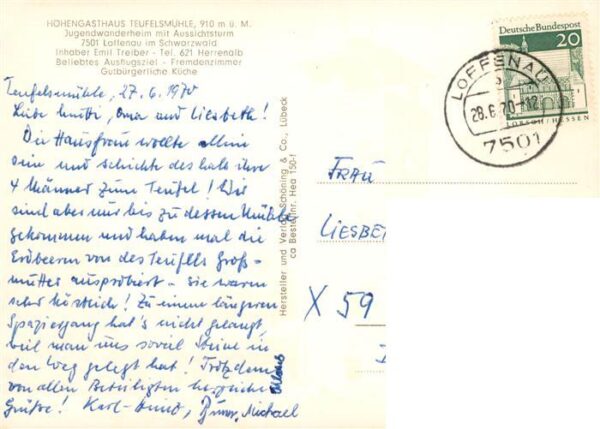 HÖHENGASTHAUS TEUFELSMÜHLE, 910 m ü. M.
Jugendwanderheim mit Aussichtsturm
7501 Loffenau im Schwarzwald
Inhaber Emil Treiber - Tel. 621 Herrenalb
Beliebtes Ausflugsziel - Fremdenzimmer
Gutbürgerliche Küche
Teufelsmühle, 27.6.1970
Liebe Mutti, Oma und Liesbeth!
Die Hausfrau wollte allein
sein und schickte deshalb ihre
4 Männer zum Teufel! Wir
sind aber nur bis zu dessen Mühle
gekommen und haben mal die
Erdbeeren von des Teufels Groß-
mutter ausprobiert - sie waren
sehr köstlich! Zu einem längeren
Spaziergang hat's nicht gelangt,
weil man uns soviel Steine in
den Weg gelegt hat! Trotzdem
von allen Beteiligten herzliche
Grüße! Karl-Heinz, Michael
Klaus
Hersteller und Verlag Schöning & Co., Lübeck
Bestellnr. Hea 150-1
Deutsche Bundespost
20
LORSCH/HESSEN
LOFFENAU
28.6.70-12
7501
FRAU
LIESBE
X 59